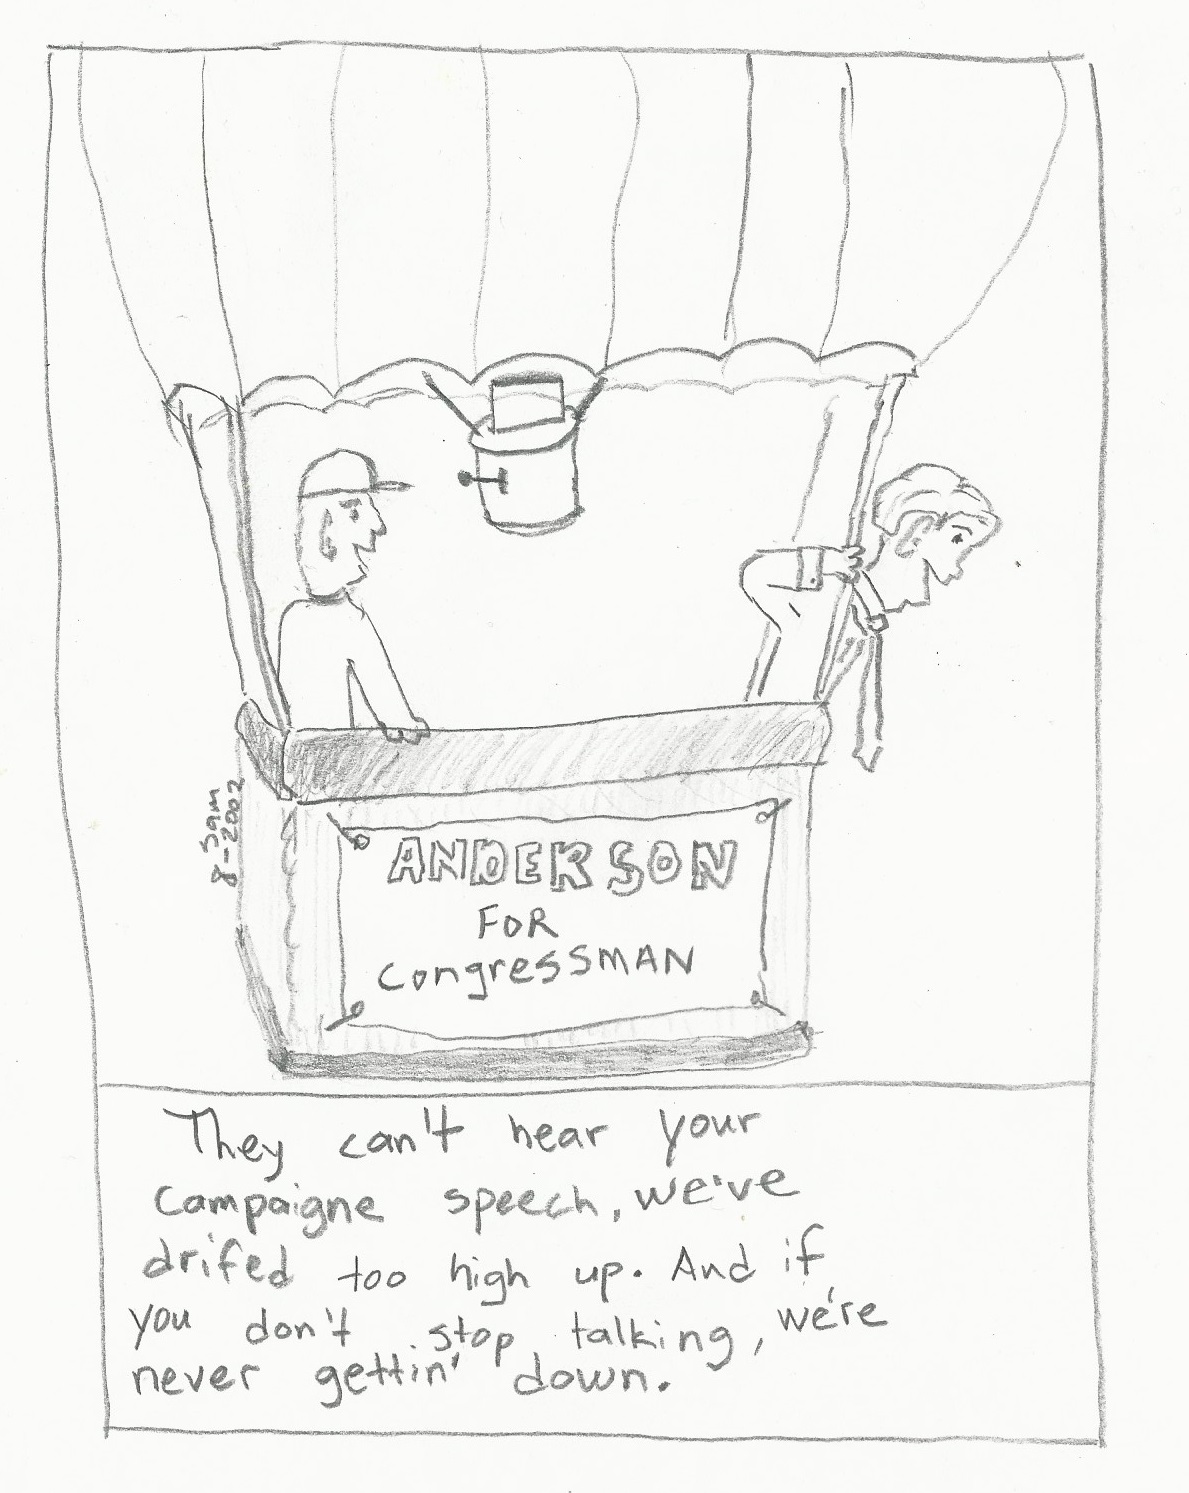 3am
8-2002
ANDERSON
FOR
Congressman
They can't hear your
campaigne speech, we've
drifed too high up. And if
you don't stop talking, we're
never gettin' down.